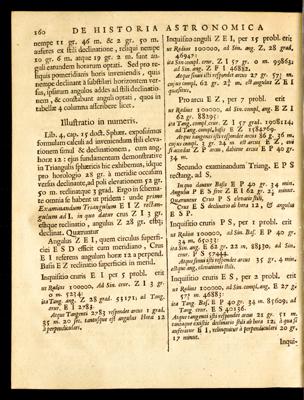 160 DE HISTORIA ASTRONOMICA
nempe 11 gr. 46 m. & 2 gr. 50 m.
auferes ex stili declinatione, reliqui nempe
10 gr. 6 m. atque 19 gr. 2 m. sunt an-
guli earundem horarum optati. Sed pro re-
liquis pomeridianis horis inveniendis, quis
nempe declinant à substilari horizontem ver-
sus, ipsarum angulos addes ad stili declinatio-
nem, & constabunt anguli optati, quos in
tabellæ 4 columna afferibere licet.
Illustratio in numeris.
Lib. 4, cap. 15 doct. Sphær. exposuimus
formulam calculi ad inveniendam stili eleva-
tionem simul & declinationem, cum ang.
horæ 12: ejus fundamentum demonstrative
in Triangulis sphæricis hic exhibemus, idque
pro horologio 28 gr. à meridie occasum
versus declinante, ad poli elevationem 52 gr.
50 m. reclinaque 3 grad. Ergo in schema-
te omnia se habent ut pridem: unde primo
Examinandum Triangulum E I Z rectan-
gulum ad I, in quo datur crus Z I 3 gr.
estque reclinatio, angulus Z 28 gr. estque
declinat. Quæruntur
Angulus Z E I, quem circulus superfi-
ciei E S D efficit cum meridiano, Crus
E I referens angulum horæ 12 a perpend.
Basis E Z reclinatio superficiei in merid.
Inquisitio cruris E I per 5 probl. erit
ut Radius 100000, Ad Sin. crur. Z I 3 gr.
0 m. 5234.
ita Tang. ang. Z 28 grad. 53171; ad Tang.
crur. E I 2783.
Atque Tangenti 2783 respondet arcus 1 grad.
35 m. 20 sec. tantusque est angulus Horæ 12
à perpendiculari.
Inquisitio anguli Z E I, per 15 probl. erit
ut Radius 100000, ad Sin. ang. Z, 28 grad.
46947:
ita Sin compl. crur. Z I 57 gr. 0 m. 99863;
ad Sin. ang. Z
Atque sinui isti respondet arcus 27 gr. 57½ m.
cujus compl. 62 gr. 2½ m. est angulus Z E I
quæsitus.
Pro arcu E Z, per 7 probl. erit
ut Radius 100000, ad Sin compl. ang. E Z I
62 gr. 88295:
ita Tang. compl. crur. Z I 57 grad. 1908114;
ad Tang. compl. basis E Z 1584769.
Atque tangenti isti respondet arcus 86 gr. 36 m.
cujus compl. 3 gr. 24 m. est arcus E Z, ex
auferendus Z P arcu, dabitur arcus E P 40 gr.
34 m.
Secundo examinandum Triang. E P S
rectang. ad S,
In quo dantur Basis E P 40 gr. 34 min.
Angulus P E S sive Z E I 62 gr. 2½ minut.
Quæruntur Crus P S elevatio stili,
Crus E S declinatio ab hora 12, & angulus
E S P.
Inquisitio cruris P S, per 1 probl. erit
ut Radius 100000, ad Sin. Bas. E P 40 gr.
34 m. 65033:
ita Sin. ang. E 62 gr. 22 m. 88330, ad Sin.
crur. P S 57444.
Atque sinui isti respondet arcus 35 gr. 4 min.
atque ang. elevationis stili.
Inquisitio cruris E S, per 2 probl. erit
ut Radius 100000, ad Sin. compl. ang. E 27 gr.
57½ m. 46888:
ita Tang. Bas. E P 40 gr. 34 m. 85609, ad
Tang. crur. E S 40136.
Atque tangenti isti respondet arcus 21 gr. 51 m.
tantaque existit declinatio stili ab hora 12; à qua si
auferatur E I, relinquitur à perpendiculari 20 gr.
17 minut.
Inqui-